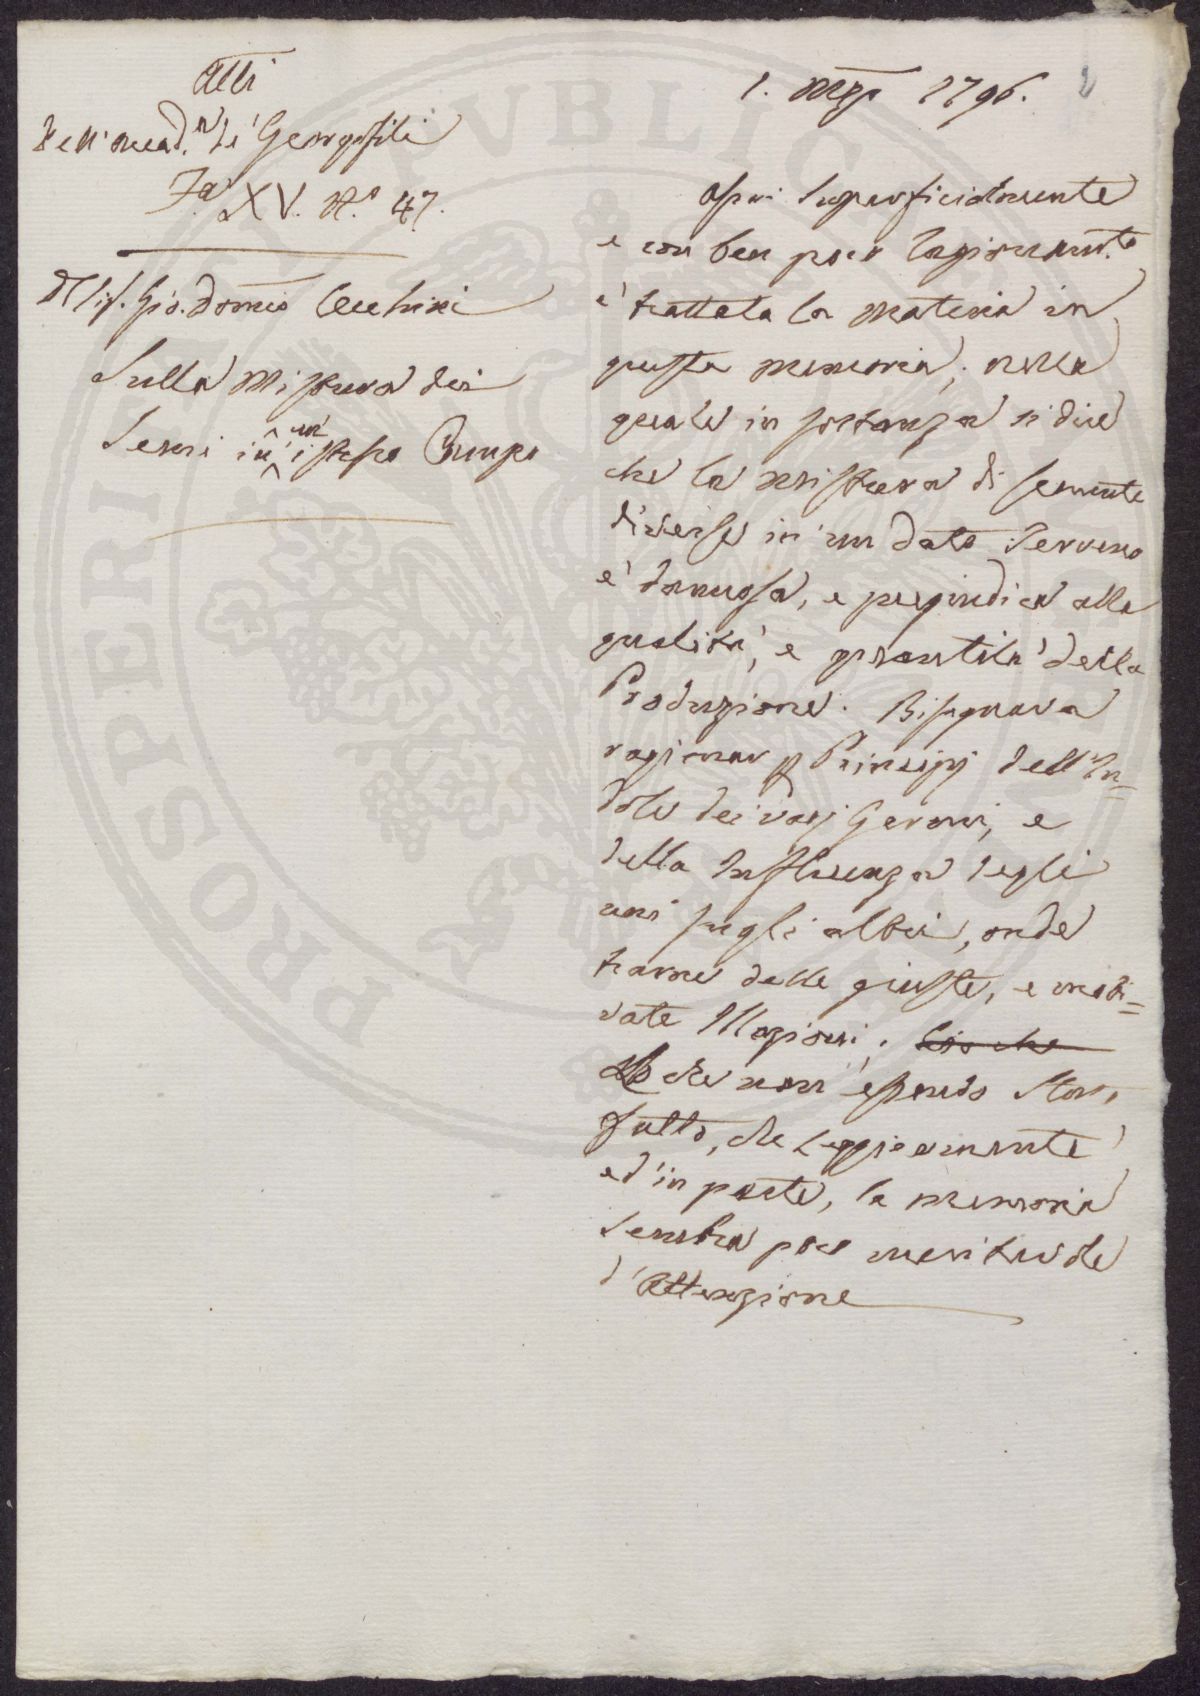 Atti
dell'Accad.a de' Georgofili
Fa XV. N.o 47.
Del Sig. Gio. Domco Cecchini
Sulla Mistura dei
Semi in un istesso Campo
1. Mago 1796.
Assai superficialmente
e con ben poco ragionamto
è trattata la materia in
questa memoria; nella
quale in sostanza si dice
che la mistura di semente
diverse in un dato terreno
è dannosa, e pregiudica alla
qualità, e quantità della
Produzione. Bisognava
ragionar p Principj dell'In=
dole dei varj Germi, e
della Influenza degli
uni sugli altri, onde
trarne delle giuste, e moti=
vate Illazioni. Lo che
Lo che non essendo stato
fatto, che leggiermente
ed in parte, la memoria
sembra poco meritevole
d'Attenzione
PUBLICAE
PROSPERITATI